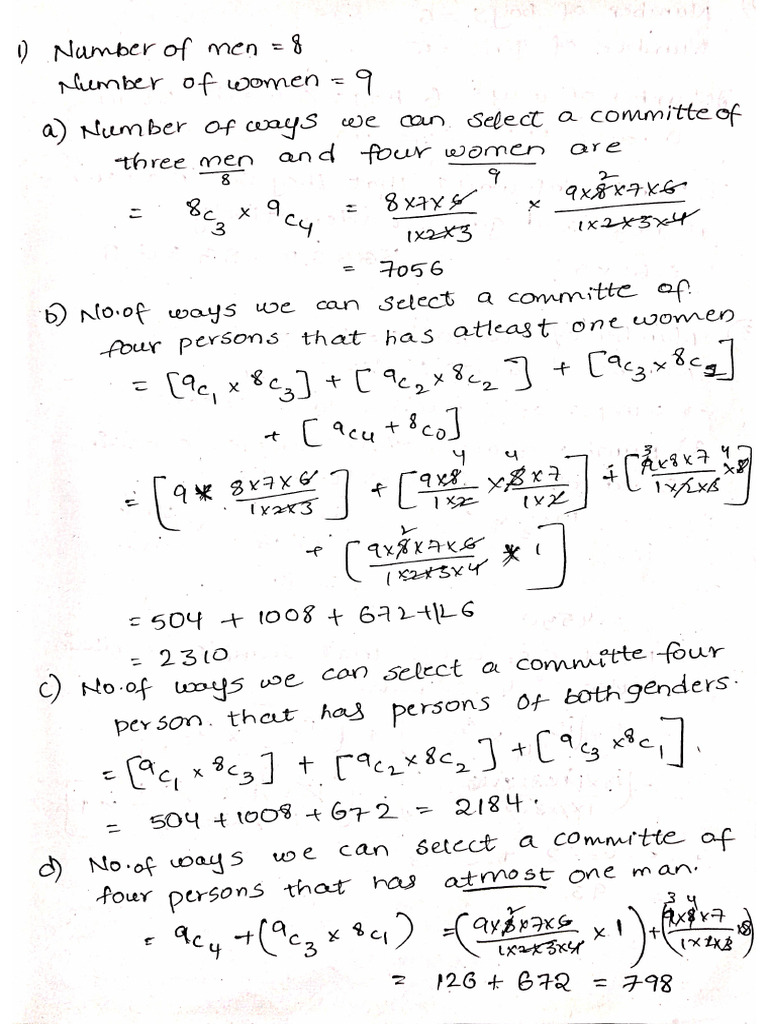 1) Number of men = 8
Number of women = 9
a) Number of ways we can select a committe of
three men and four women are
8 9
= 8C3 × 9C4 = 8×7×6/1×2×3 × 9×8×7×6/1×2×3×4 2
= 7056
b) No.of ways we can select a committe of
four persons that has atleast one women
= [9C1 × 8C3] + [9C2 × 8C2] + [9C3 × 8C1]
+ [9C4 + 8C0]
= [9 × 8×7×6/1×2×3] + [9×8/1×2 × 8×7/1×2] + [9×8×7/1×2×3 × 8] 4 4 3 4
+ [9×8×7×6/1×2×3×4 × 1] 2
= 504 + 1008 + 672 + 126
= 2310
c) No.of ways we can select a committe four
person. that has persons of both genders.
= [9C1 × 8C3] + [9C2 × 8C2] + [9C3 × 8C1].
= 504 + 1008 + 672 = 2184.
d) No.of ways we can select a committe of
four persons that has atmost one man.
= 9C4 + (9C3 × 8C1) = (9×8×7×6/1×2×3×4 × 1) + (9×8×7/1×2×3 × 8) 2 3 4
= 126 + 672 = 798